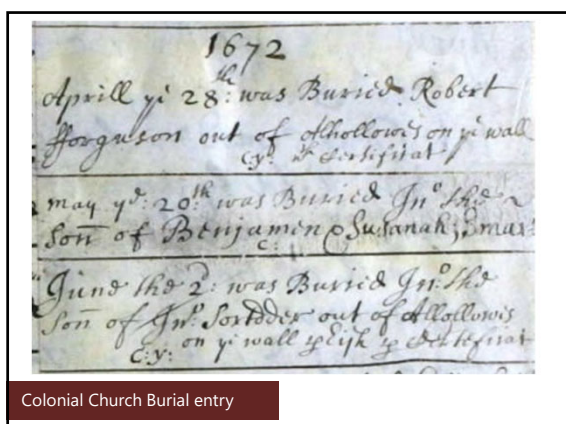 1672
Aprill ye 28:th was Buried Robert
fforguson out of Alhollowis on ye wall
c:y: certifitat
may ye: 20:th was Buried Jno the
Son of Benjamen & Susanah
June the 2: was Buried Jno: the
Son of Jno out of Allollowis
C:y: on ye wall
Colonial Church Burial entry